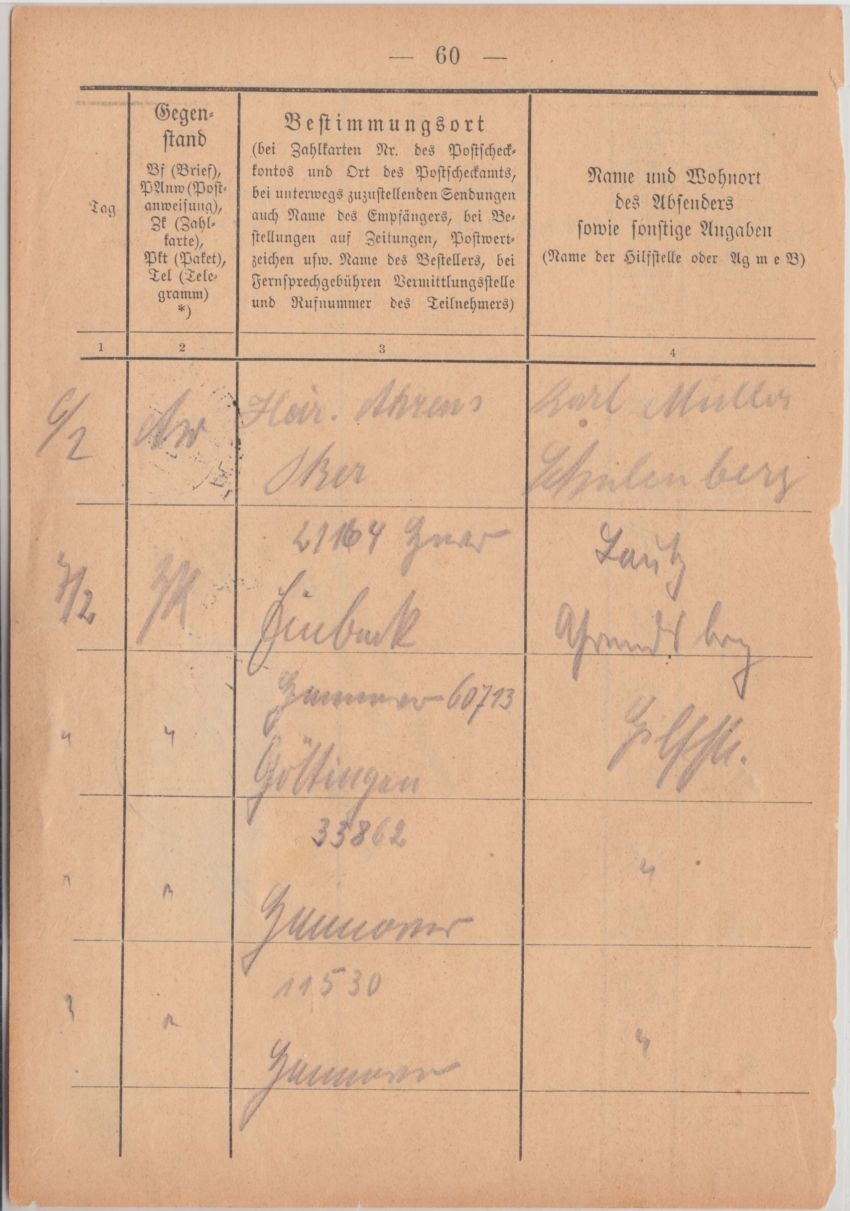 — 60 —
Tag
Gegen-
stand
Bf (Brief),
PAnw (Post-
anweisung),
Zk (Zahl-
karte),
Pkt (Paket),
Tel (Tele-
gramm)
*)
Bestimmungsort
(bei Zahlkarten Nr. des Postscheck-
kontos und Ort des Postscheckamts,
bei unterwegs zuzustellenden Sendungen
auch Name des Empfängers, bei Be-
stellungen auf Zeitungen, Postwert-
zeichen usw. Name des Bestellers, bei
Fernsprechgebühren Vermittlungsstelle
und Rufnummer des Teilnehmers)
Name und Wohnort
des Absenders
sowie sonstige Angaben
(Name der Hilfstelle oder Ag m e B)
1 2 3 4
6/2 Aw Heir. Ahrens Karl Müller
Oker Schulenberg
Lautz
7/2 ZK Einbeck
Hannover 60713
" " Göttingen Hilfst.
33862
" " Hannover "
11530
" " Hannover "